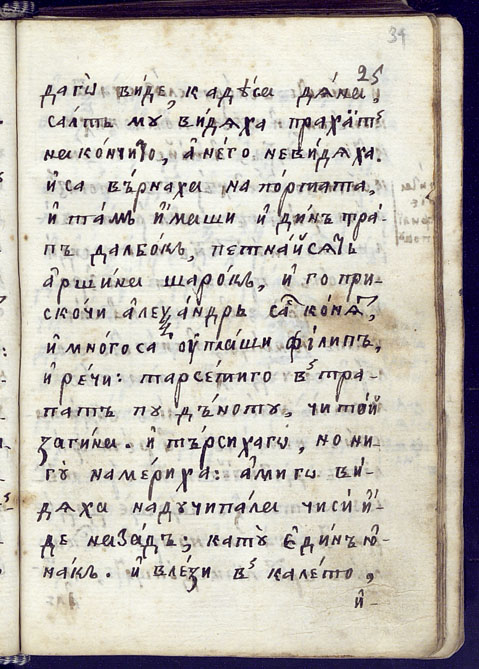 34
25
дагѡ̀ ви́де, кадѣ́са дѧ́на,
са́лть му ви́дѧха прахатъ
на ко́нчито, а҆ не́го неви́дѧха.
и҆ са въ́рнаха на по́рта та,
и҆ та́мъ и҆́маши и҆ ди́нъ тра́-
пъ далбо́къ, петна́йсѧть
а҆рши́на шаро́къ, и҆ го при-
ско́чи а҆леѯа́ндръ са коня,
и҆ мно́го са оу҆пла́ши фі́липъ,
и҆ ре́чи: тарсе́тиго въ тра-
патъ пу дъ́ноту, чи то́й
заги́на. и҆ тъ́рсихагѡ, но ни-
гѡ̀ наме́риха: а҆ми гѡ ви́-
дѧха надучипа́ла чиси и҆́-
де наза́дъ; кату̀ є҆ди́нъ ю҆-
на́къ. и҆ вле́зи въ кале́то,
и҆-